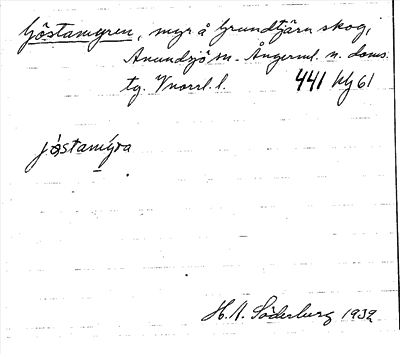 Göstamyren, myr å Grundtjärn skog,
Anundsjö sn. Ångerml. n. doms.
tg. Vnorrl. l. 441 Hg 61
jö́stamýra
H. A. Söderberg 1932